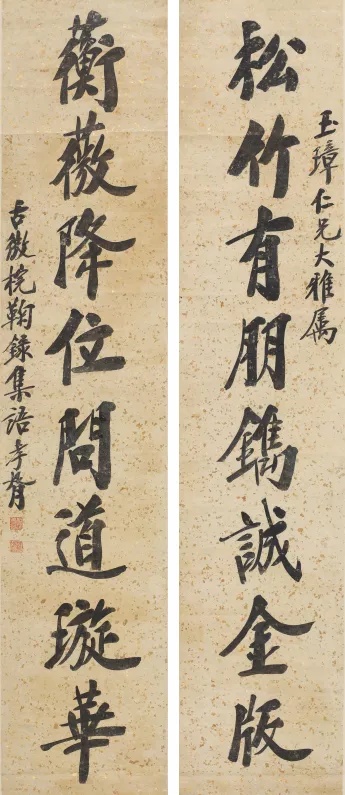 玉璋仁兄大雅属
松竹有朋鐫誠金版
衡薇降位問道璇華
古微梡鞠錄集語孝胥